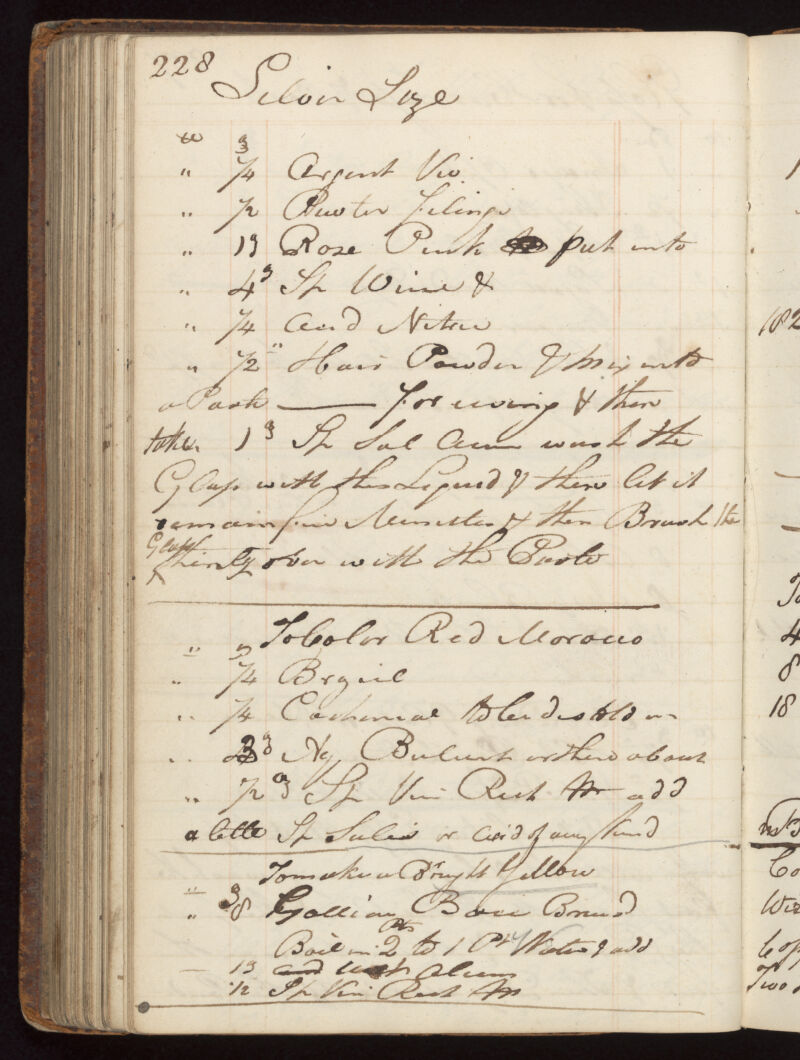 228
Silver Size
" 1/4 Argent Viv
" 1/2 Pewter filings
" 1 ʒ Rose Pink put into
" 4 ʒ Sp Wine &
" 1/4 acid Nitre
" 1/2 " Hair Powder & Mix into
a Past — for using & then
take 1 ʒ Sp Sal Am wash the
Glass with this Liquid & then let it
remain five Minutes & then Brush the
Glass
thinly over with the Paste
To Color Red Morocco
" 1/4 Brazil
" 1/4 Cochineal to be
" 3 ʒ or there about
" 1/2 ʒ Sp Vin Rect add
a little Sp Salis or acid of any kind
To make a Bright Yellow
" 3/8 Bruisd
Pts
Boil in 2 to 1 Pt Water & add
1 ʒ Alum
1/2 Sp Vin Rect
182
4
8
18